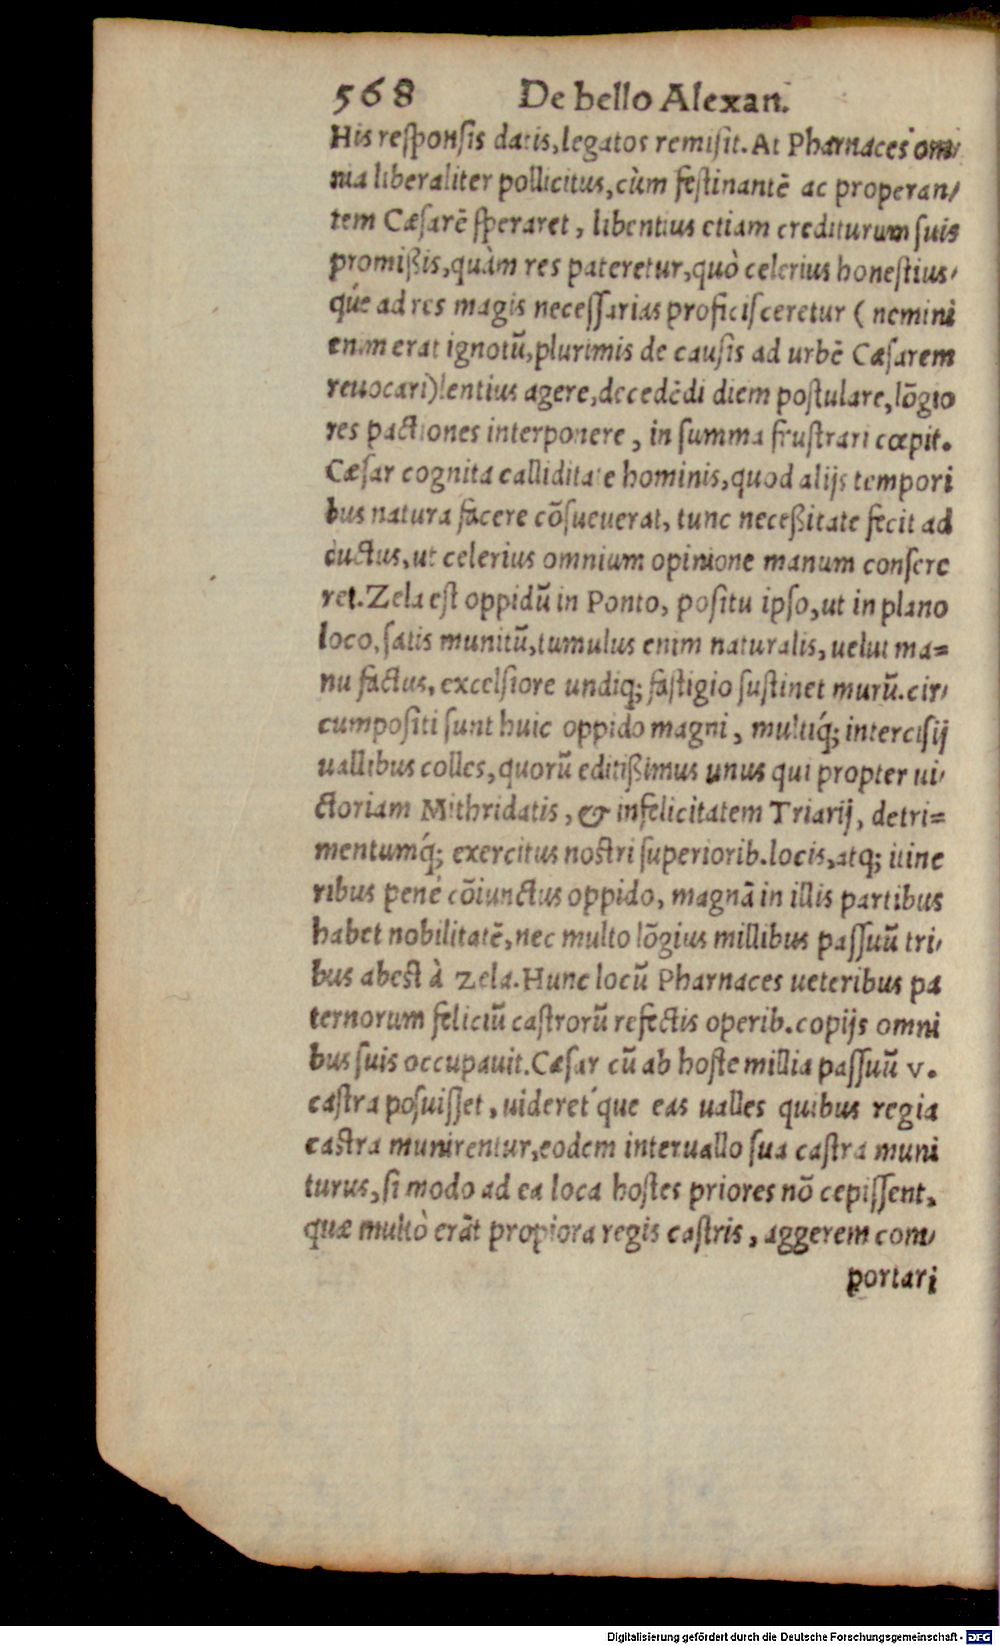 568 De bello Alexan.
His responsis datis, legatos remisit. At Pharnaces om/
nia liberaliter pollicitus, cùm festinantē ac properan/
tem Cæsarē speraret, libentius etiam crediturum suis
promißis, quàm res pateretur, quò celerius honestius/
qúe ad res magis necessarias proficisceretur (nemini
enim erat ignotū, plurimis de causis ad urbē Cæsarem
reuocari) lentius agere, decedēdi diem postulare, lōgio
res pactiones interponere, in summa frustrari cœpit.
Cæsar cognita calliditate hominis, quod alijs tempori
bus natura facere cōsueuerat, tunc neceßitate fecit ad
ductus, ut celerius omnium opinione manum consere
ret. Zela est oppidū in Ponto, positu ipso, ut in plano
loco, satis munitū, tumulus enim naturalis, uelut ma=
nu factus, excelsiore undiq; fastigio sustinet murū. cir/
cumpositi sunt huic oppido magni, multiq́; intercisij
uallibus colles, quorū editißimus unus qui propter ui/
ctoriam Mithridatis, & infelicitatem Triarij, detri=
mentumq́; exercitus nostri superiorib. locis, atq; itine
ribus pené cōiunctus oppido, magnā in illis partibus
habet nobilitatē, nec multo lōgius millibus passuū tri/
bus abest à Zela. Hunc locū Pharnaces ueteribus pa
ternorum feliciū castrorū refectis operib. copijs omni
bus suis occupauit. Cæsar cū ab hoste millia passuū v.
castra posuisset, uideret́que eas ualles quibus regia
castra munirentur, eodem interuallo sua castra muni
turus, si modo ad ea loca hostes priores nō cepissent,
quæ multò erāt propiora regis castris, aggerem com/
portari
Digitalisierung gefördert durch die Deutsche Forschungsgemeinschaft - DFG